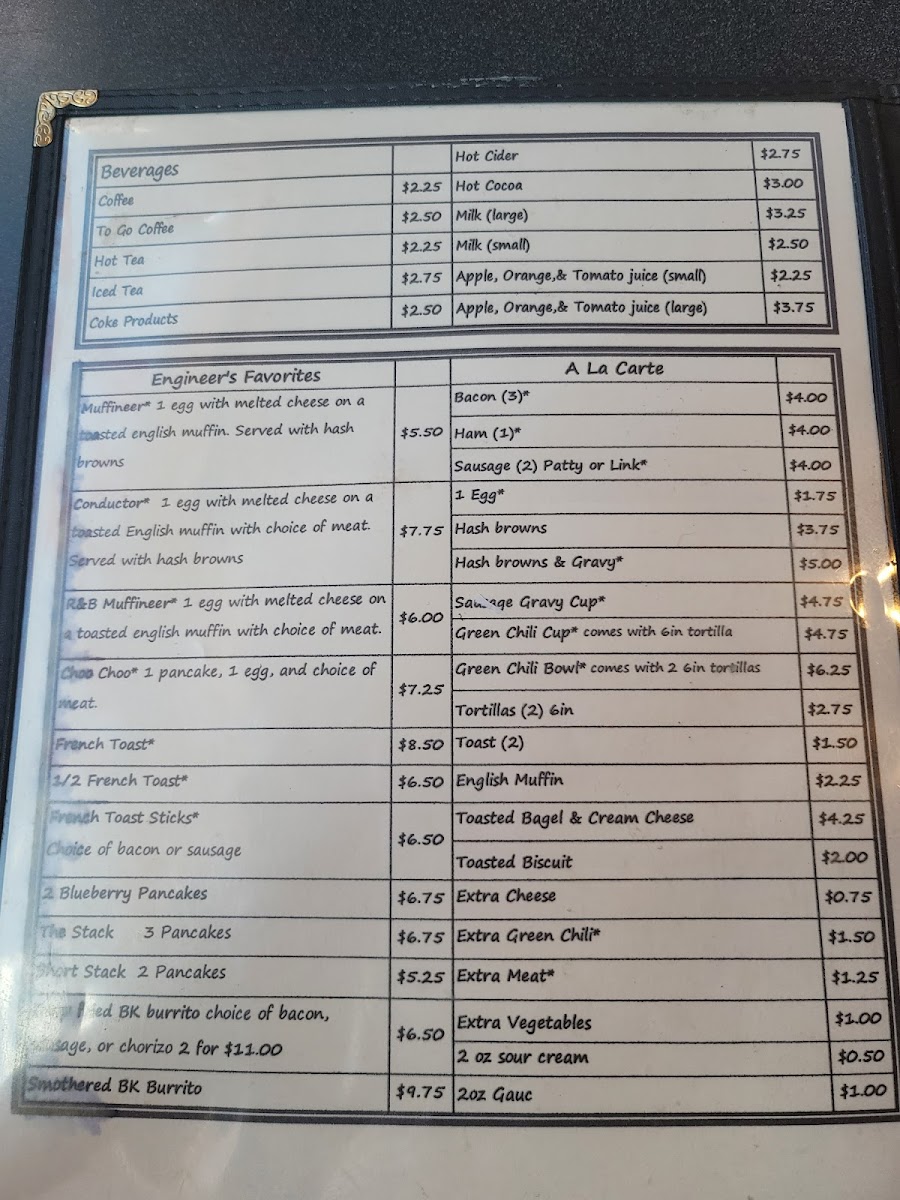 Beverages
Coffee $2.25
To Go Coffee $2.50
Hot Tea $2.25
Iced Tea $2.75
Coke Products $2.50
Hot Cider $2.75
Hot Cocoa $3.00
Milk (large) $3.25
Milk (small) $2.50
Apple, Orange,& Tomato juice (small) $2.25
Apple, Orange,& Tomato juice (large) $3.75
Engineer's Favorites
Muffineer* 1 egg with melted cheese on a
toasted english muffin. Served with hash $5.50
browns
Conductor* 1 egg with melted cheese on a
toasted English muffin with choice of meat. $7.75
Served with hash browns
R&B Muffineer* 1 egg with melted cheese on $6.00
a toasted english muffin with choice of meat.
Choo Choo* 1 pancake, 1 egg, and choice of $7.25
meat.
French Toast* $8.50
1/2 French Toast* $6.50
French Toast Sticks* $6.50
Choice of bacon or sausage
2 Blueberry Pancakes $6.75
The Stack 3 Pancakes $6.75
Short Stack 2 Pancakes $5.25
BK burrito choice of bacon, $6.50
sausage, or chorizo 2 for $11.00
Smothered BK Burrito $9.75
A La Carte
Bacon (3)* $4.00
Ham (1)* $4.00
Sausage (2) Patty or Link* $4.00
1 Egg* $1.75
Hash browns $3.75
Hash browns & Gravy* $5.00
Sausage Gravy Cup* $4.75
Green Chili Cup* comes with 6in tortilla $4.75
Green Chili Bowl* comes with 2 6in tortillas $6.25
Tortillas (2) 6in $2.75
Toast (2) $1.50
English Muffin $2.25
Toasted Bagel & Cream Cheese $4.25
Toasted Biscuit $2.00
Extra Cheese $0.75
Extra Green Chili* $1.50
Extra Meat* $1.25
Extra Vegetables $1.00
2 oz sour cream $0.50
2oz Gauc $1.00